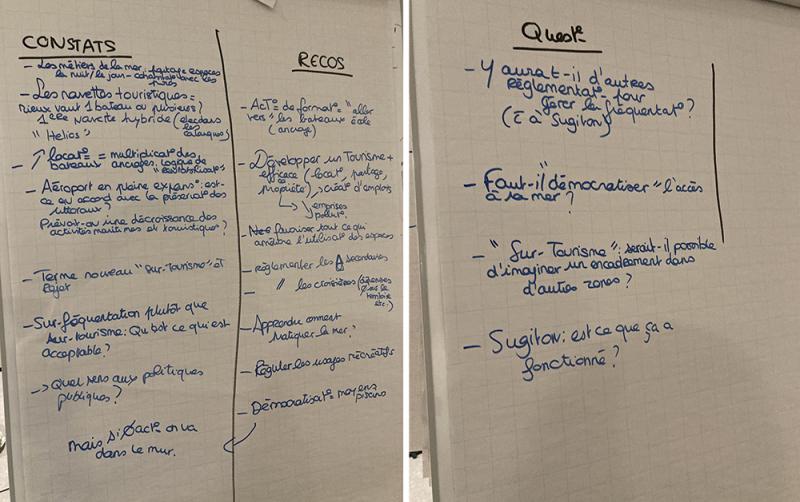 CONSTATS
- Les métiers de la mer : partage espaces
la nuit/le jour - cohabitat° avec les
- Les navettes touristiques =
mieux vaut 1 bateau ou plusieurs ?
1ère navette hybride (elec dans
les
calanques)
"Helios"
- ↑ locat° = multiplicat° des
bateaux, ancrages, logique de
"rentabilisat°"
- Aéroport en pleine expans° : est-
ce en accord avec la préservat° des
littoraux ?
Prévoit-on une décroissance des
activités maritimes et touristiques ?
- Terme nouveau "Sur-Tourisme" et
rejet
- Sur-fréquentation plutôt que
sur-tourisme : Qu'est ce qui est
acceptable ?
-> Quel sens aux politiques
publiques ?
mais si Ø act° on va
dans le mur.
RECOS
- Act° = de format° = "aller
vers" les bateaux école
(ancrage)
- Développer un Tourisme +
efficace (locat°, partage,
propriété) -> créat° d'emplois
↳ ↘ emprises
pollut°.
- favoriser tout ce qui
améliore l'utilisat° des espaces
- règlementer les secondaires
- " les croisières (dépenses
sur le
territoire
etc.)
- Apprendre comment
pratiquer la mer ?
- Réguler les usages récréatifs
- Démocratisat° = moyens
piscine
Quest°
- Y aurait-il d'autres
règlementat° pour
gérer la fréquentat° ?
(c̄ à Sugiton)
- Faut-il "démocratiser" l'accès
à la mer ?
- "Sur-Tourisme" : serait-il possible
d'imaginer un encadrement dans
d'autres zones ?
- Sugiton : est ce que ça a
fonctionné ?